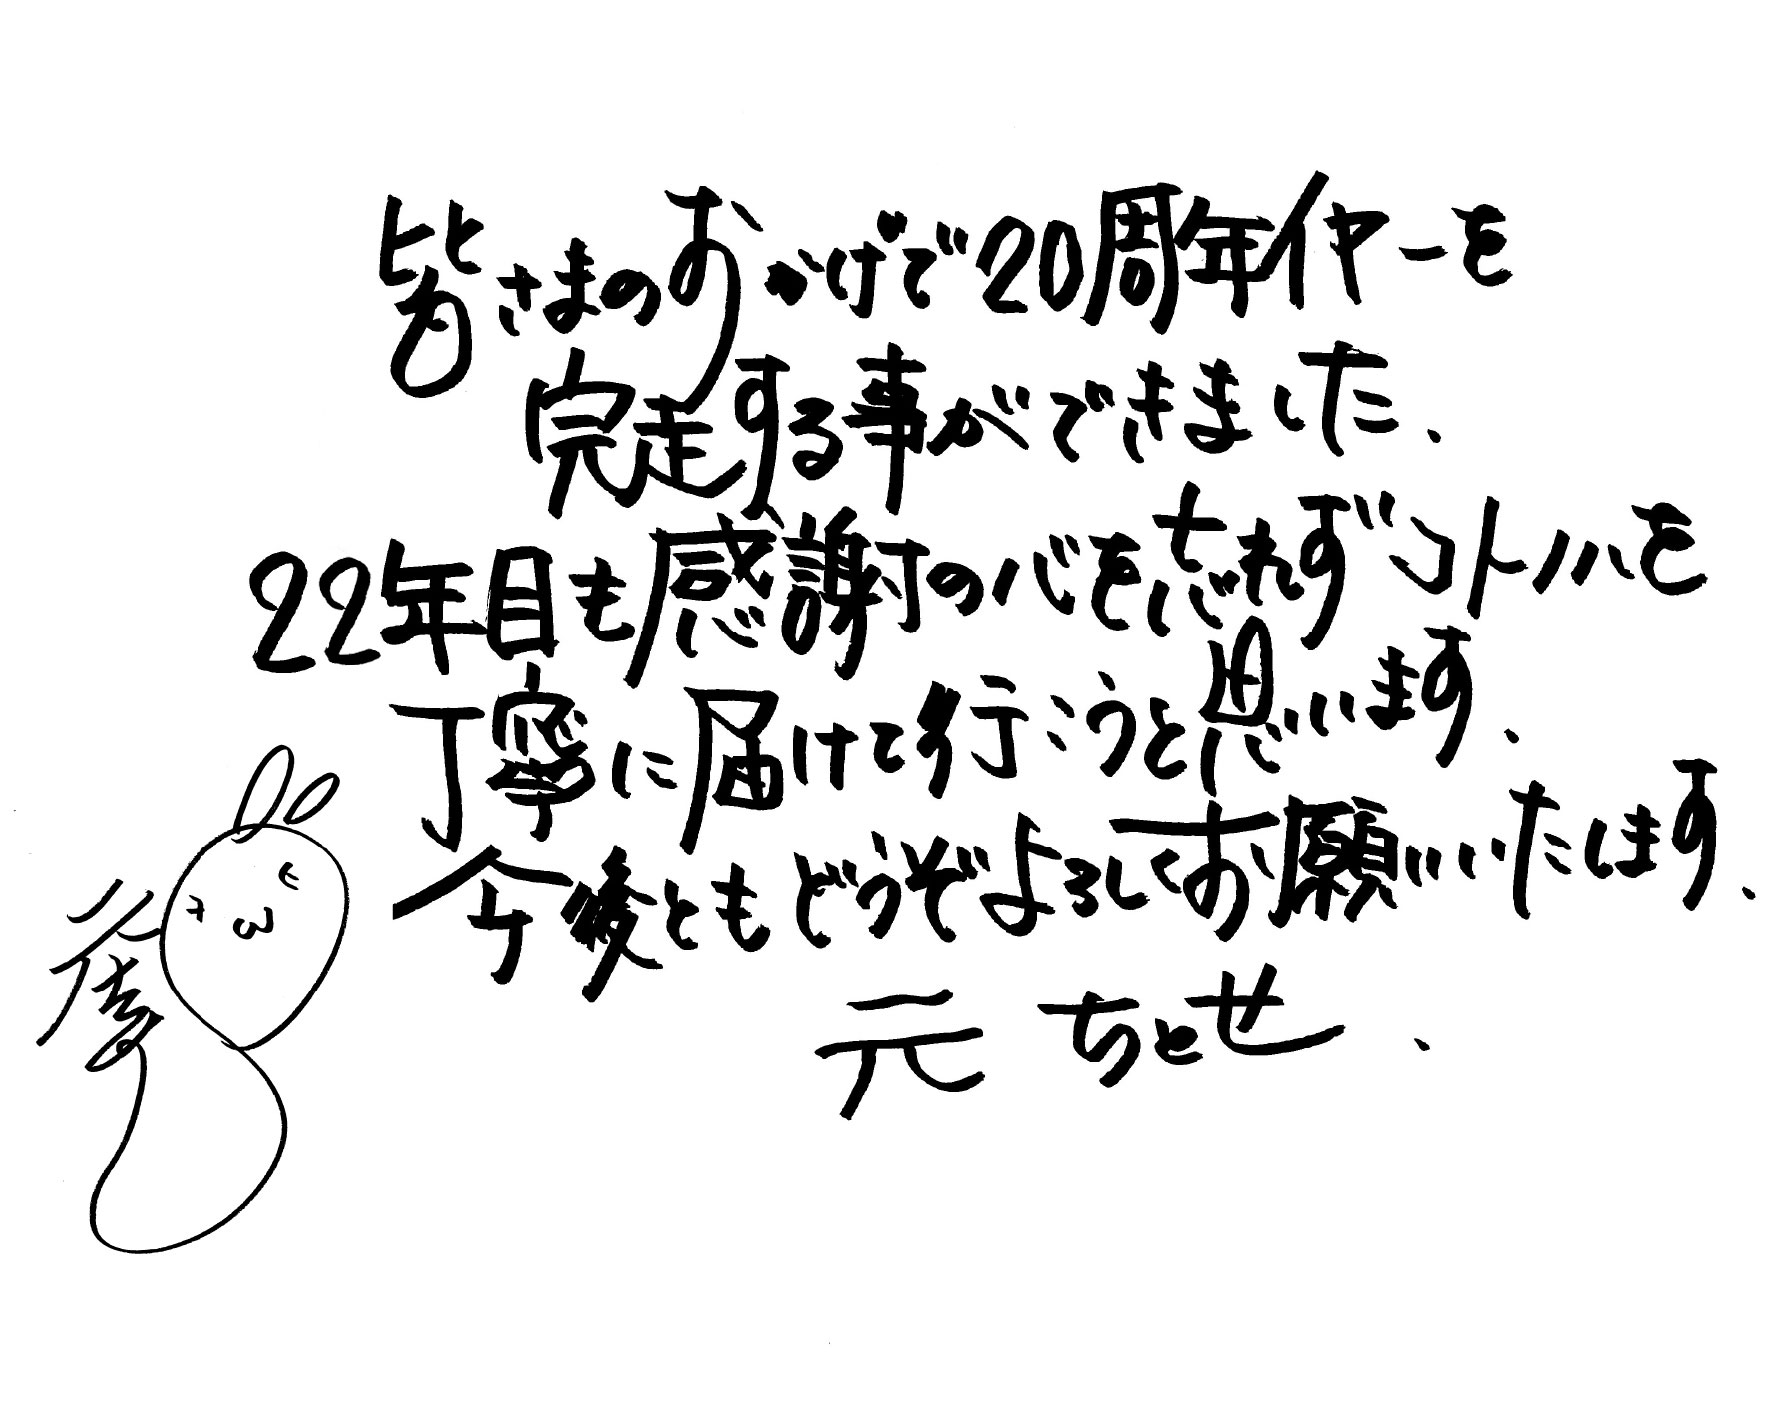 皆さまのおかげで20周年イヤーを
完走する事ができました、
22年目も感謝の心を忘れずコトノハを
丁寧に届けて行こうと思います、
今後ともどうぞよろしくお願いいたします、
元 ちとせ、